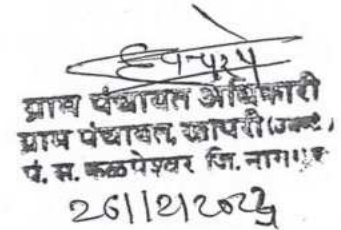 ग्राम पंचायत अधिकारी
ग्राम पंचायत, खापरी (उबगी)
पं. स. कळमेश्वर जि. नागपूर
26/12/2025